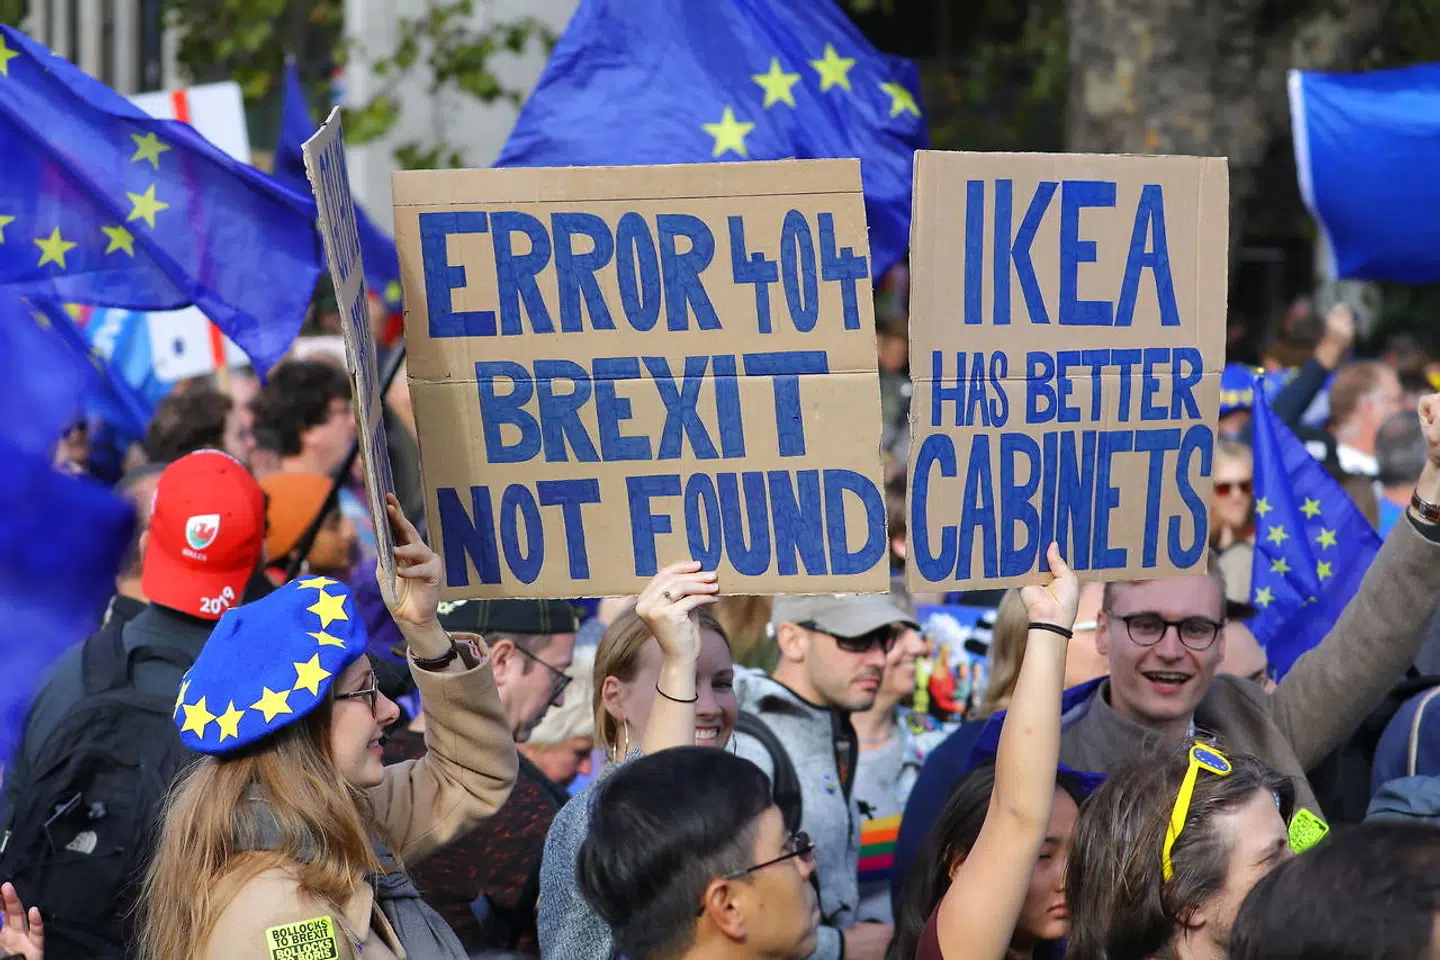 ERROR 404
BREXIT
NOT FOUND
IKEA
HAS BETTER
CABINETS
WALES
2019
BOLLOCKS
TO BREXIT
BOLLOCKS
TO BORIS